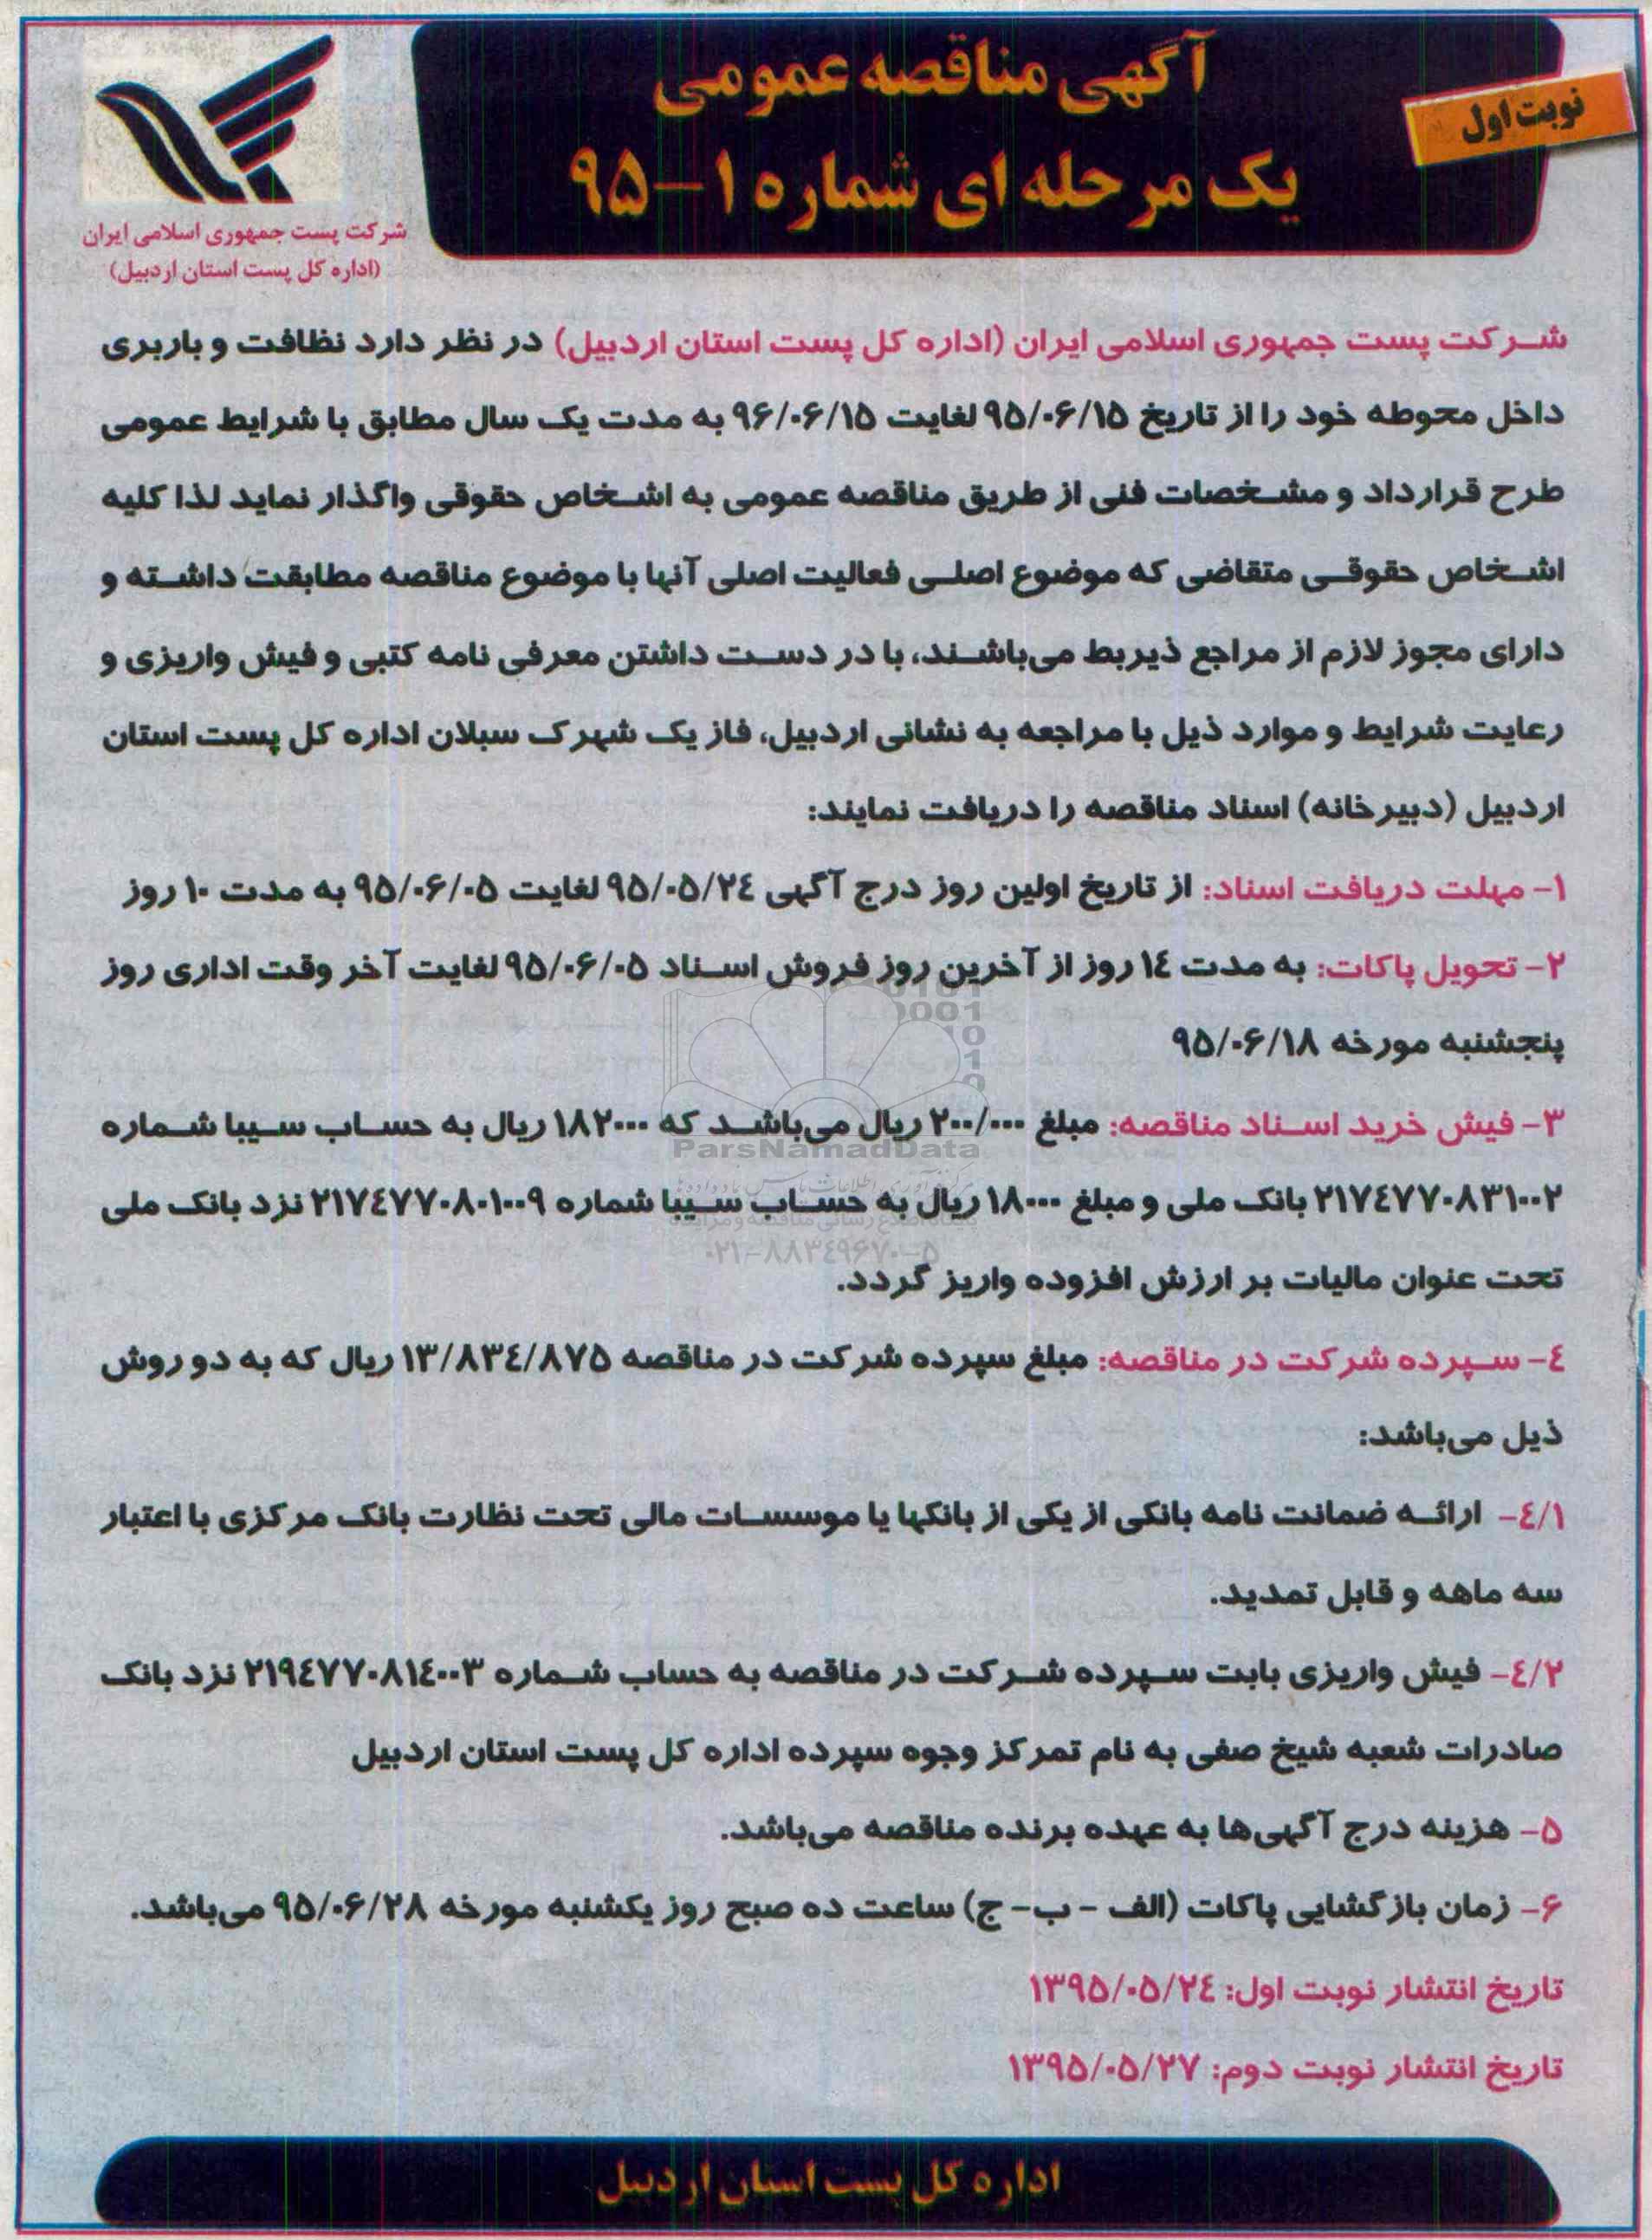 آگهی مناقصه عمومی
یک مرحله ای شماره ۱-۹۵
نوبت اول
شرکت پست جمهوری اسلامی ایران
(اداره کل پست استان اردبیل)
شرکت پست جمهوری اسلامی ایران (اداره کل پست استان اردبیل) در نظر دارد نظافت و باربری
داخل محوطه خود را از تاریخ ۹۵/۰۶/۱۵ لغایت ۹۶/۰۶/۱۵ به مدت یک سال مطابق با شرایط عمومی
طرح قرارداد و مشخصات فنی از طریق مناقصه عمومی به اشخاص حقوقی واگذار نماید لذا کلیه
اشخاص حقوقی متقاضی که موضوع اصلی فعالیت اصلی آنها با موضوع مناقصه مطابقت داشته و
دارای مجوز لازم از مراجع ذیربط می‌باشند، با در دست داشتن معرفی نامه کتبی و فیش واریزی و
رعایت شرایط و موارد ذیل با مراجعه به نشانی اردبیل، فاز یک شهرک سبلان اداره کل پست استان
اردبیل (دبیرخانه) اسناد مناقصه را دریافت نمایند:
۱- مهلت دریافت اسناد: از تاریخ اولین روز درج آگهی ۹۵/۰۵/۲٤ لغایت ۹۵/۰۶/۰۵ به مدت ۱۰ روز
۲- تحویل پاکات: به مدت ۱٤ روز از آخرین روز فروش اسناد ۹۵/۰۶/۰۵ لغایت آخر وقت اداری روز
پنجشنبه مورخه ۹۵/۰۶/۱۸
۳- فیش خرید اسناد مناقصه: مبلغ ۲۰۰/۰۰۰ ریال می‌باشد که ۱۸۲۰۰۰ ریال به حساب سیبا شماره
۲۱۷٤۷۷۰۸۳۱۰۰۲ بانک ملی و مبلغ ۱۸۰۰۰ ریال به حساب سیبا شماره ۲۱۷٤۷۷۰۸۰۱۰۰۹ نزد بانک ملی
تحت عنوان مالیات بر ارزش افزوده واریز گردد.
٤- سپرده شرکت در مناقصه: مبلغ سپرده شرکت در مناقصه ۱۳/۸۳٤/۸۷۵ ریال که به دو روش
ذیل می‌باشد:
٤/۱- ارائه ضمانت نامه بانکی از یکی از بانکها یا موسسات مالی تحت نظارت بانک مرکزی با اعتبار
سه ماهه و قابل تمدید.
٤/۲- فیش واریزی بابت سپرده شرکت در مناقصه به حساب شماره ۲۱۹٤۷۷۰۸۱٤۰۰۳ نزد بانک
صادرات شعبه شیخ صفی به نام تمرکز وجوه سپرده اداره کل پست استان اردبیل
۵- هزینه درج آگهی‌ها به عهده برنده مناقصه می‌باشد.
۶- زمان بازگشایی پاکات (الف - ب- ج) ساعت ده صبح روز یکشنبه مورخه ۹۵/۰۶/۲۸ می‌باشد.
تاریخ انتشار نوبت اول: ۱۳۹۵/۰۵/۲٤
تاریخ انتشار نوبت دوم: ۱۳۹۵/۰۵/۲۷
اداره کل پست استان اردبیل
ParsNamadData
۰۲۱-۸۸۳٤۹۶۷۰-۵